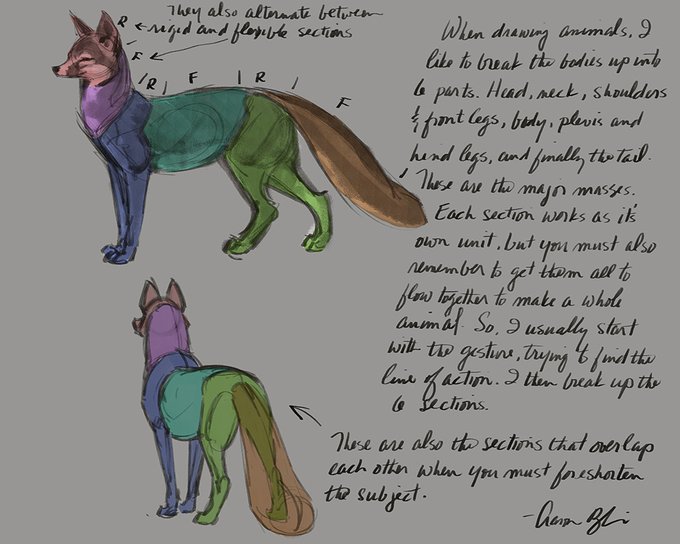 They also alternate between
rigid and flexible sections
R
F
R
F
R
F
When drawing animals, I
like to break the bodies up into
6 parts. Head, neck, shoulders
& front legs, body, plevis and
hind legs, and finally the tail.
These are the major masses.
Each section works as it's
own unit, but you must also
remember to get them all to
flow together to make a whole
animal. So, I usually start
with the gesture, trying to find the
line of action. I then break up the
6 sections.
These are also the sections that overlap
each other when you must foreshorten
the subject.
-Aaron